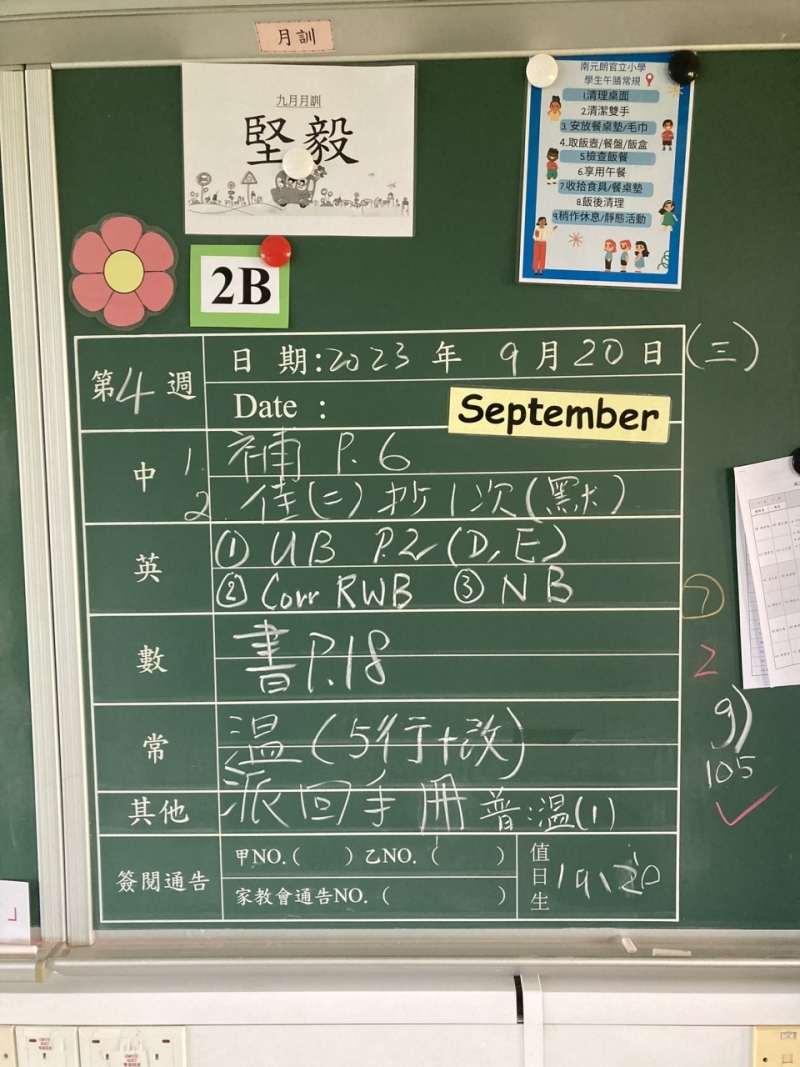 月訓
九月月訓
堅毅
南元朗官立小學
學生午膳常規
1.清理桌面
2.清潔雙手
3.安放餐桌墊/毛巾
4.取飯壺/餐盤/飯盒
5.檢查飯餐
6.享用午餐
7.收拾食具/餐桌墊
8.飯後清理
9.稍作休息/靜態活動
2B
第4週
日期:2023年9月20日(三)
Date :
September
中
1. 補 P.6
2. 佳(二)抄1次(默)
英
① UB P.2 (D, E)
② Corr RWB ③ NB
數
書P.18
常
溫(5行+改)
其他
派回手冊 普:溫(1)
簽閱通告
甲NO.( ) 乙NO.( )
家教會通告NO.( )
值日生
19、20
7
2
9)
105